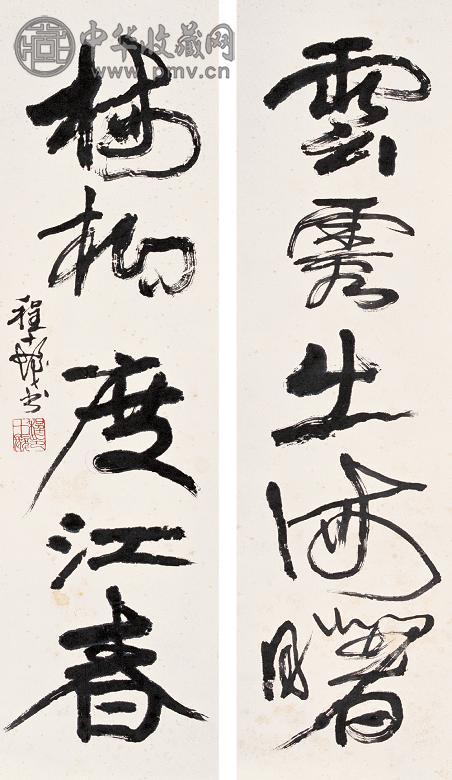 中华收藏网
www.pmv.cn
雲霞出海曙
梅柳度江春
程十髮書